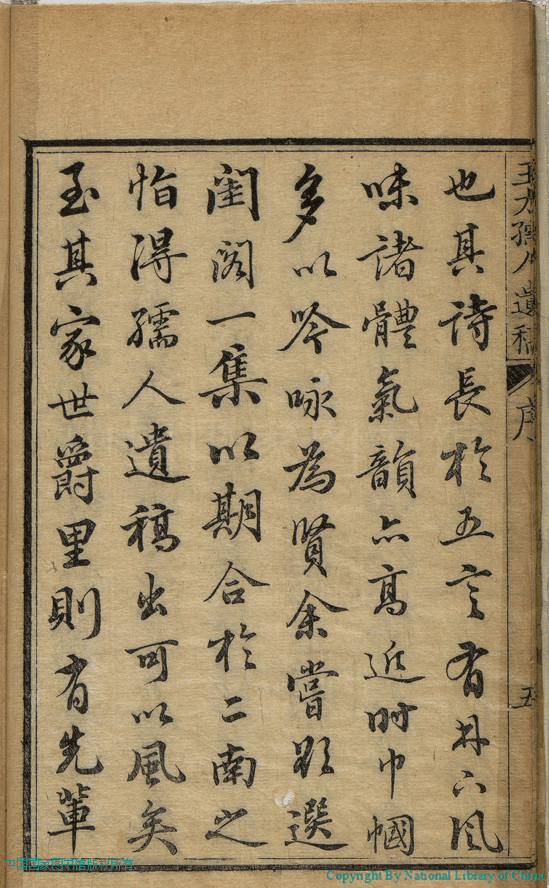 王太孺人遺稿 序 五
也其詩長於五言有林下風
味諸體氣韻亦高近時巾幗
多以吟咏為賢余嘗欲選
閨閣一集以期合於二南之
恰得孺人遺稿出可以風矣
至其家世爵里則有先輩
中国国家图书馆版权所有
Copyright By National Library of China